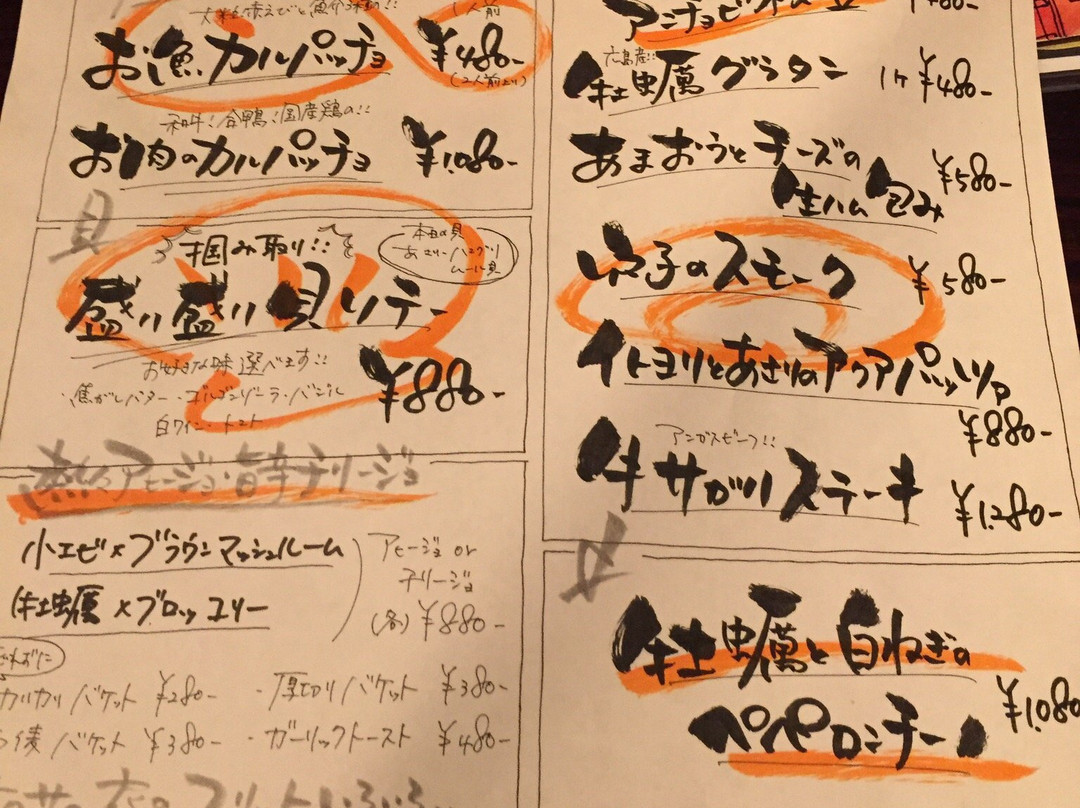 お魚カルパッチョ
¥480-
1人前
(2人前より)
和牛!合鴨!国産鶏の!!
お肉のカルパッチョ ¥1,080-
貝
掴み取り!!
本日の貝
あさり・ハマグリ
ムール貝
盛り盛り貝ソテー
お好きな味選べます!!
・焦がしバター・ゴルゴンゾーラ・バジル
白ワイン・トマト
¥880-
アヒージョ・旨辛チリージョ
小エビ×ブラウンマッシュルーム
牡蠣×ブロッコリー
アヒージョ or
チリージョ
(各)¥880-
カリカリバケット ¥280-
・厚切りバケット ¥380-
バケット ¥380-
・ガーリックトースト ¥480-
広島産!!
牡蠣グラタン 1ヶ ¥480-
あまおうとチーズの
生ハム包み
¥580-
のスモーク ¥580-
イトヨリとあさりのアクアパッツァ
¥880-
アンガスビーフ!!
牛サガリステーキ
¥1,280-
〆
牡蠣と白ねぎの
ペペロンチーノ
¥1,080